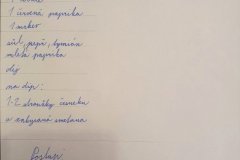 1 červená paprika
1 cuker
sůl, pepř, tymián
mletá paprika
olej
na dip:
1-2 stroužky česneku
a zakysaná smetana
Postup